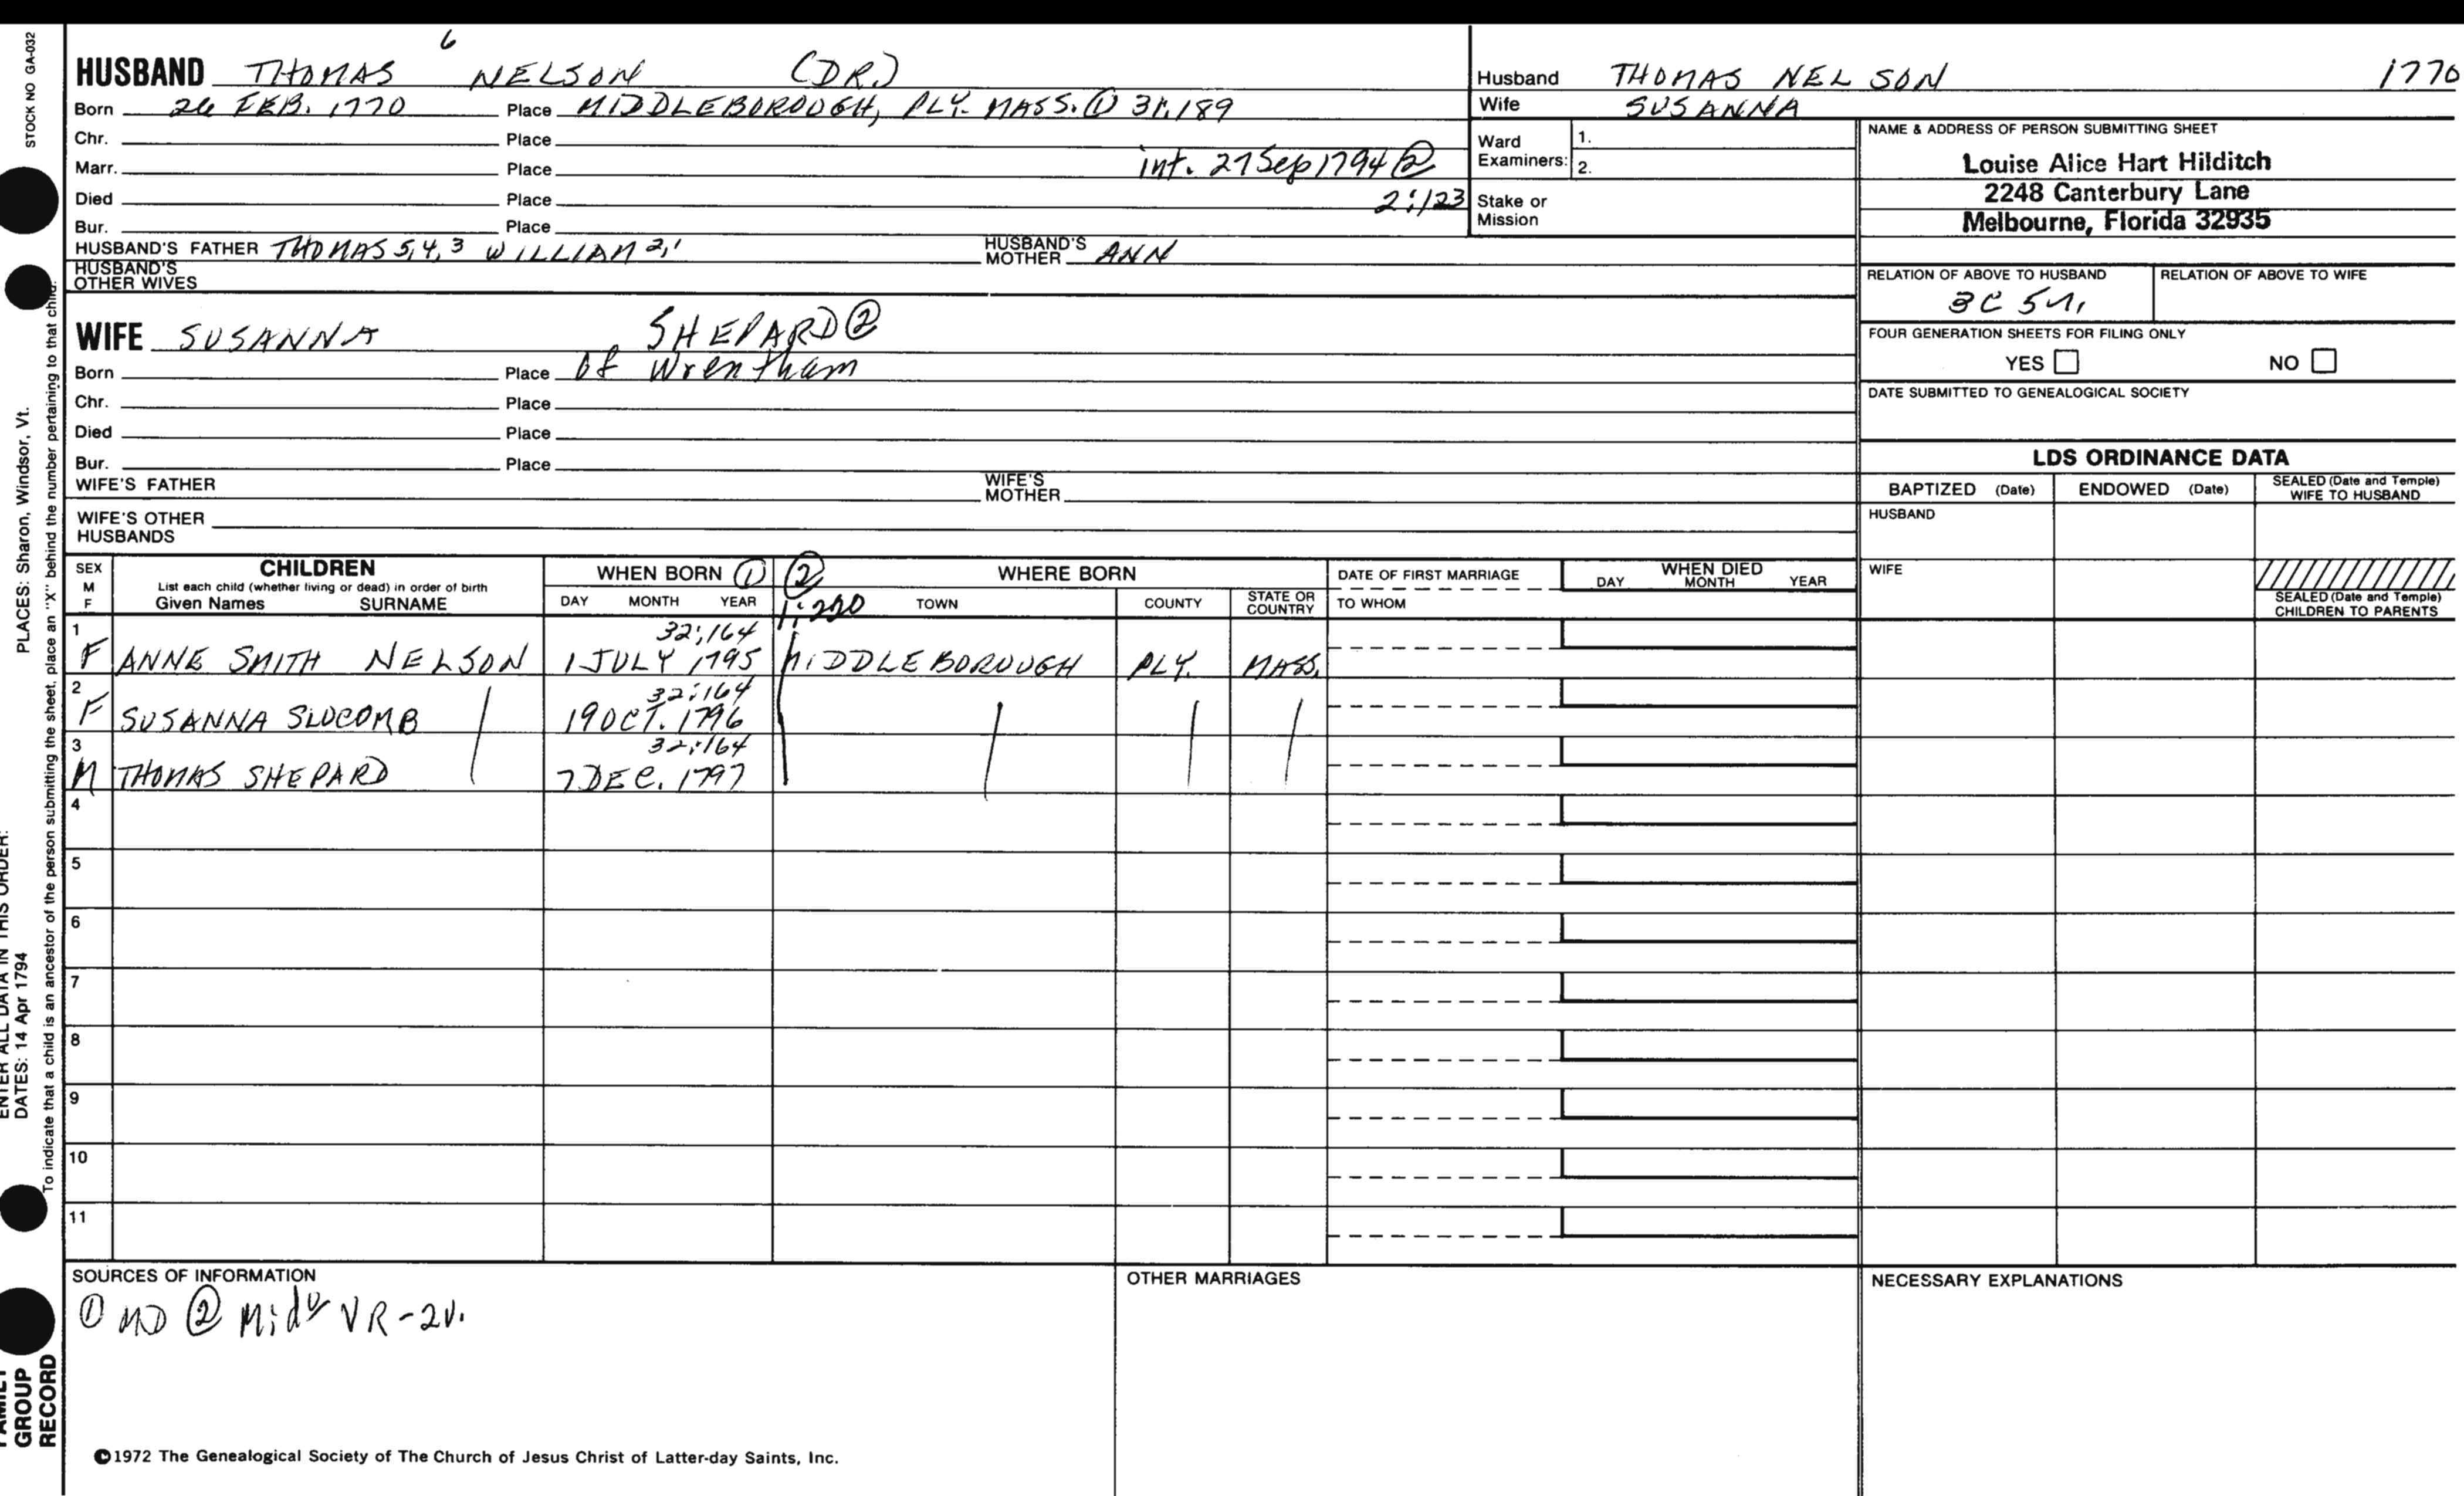 6
HUSBAND THOMAS NELSON (DR.)
Born 26 FEB. 1770 Place MIDDLEBOROUGH, PLY. MASS. ① 31:189
Chr. Place
Marr. Place int. 27 Sep 1794 ②
Died Place 2:123
Bur. Place
HUSBAND'S FATHER THOMAS 5,4,3 WILLIAM 2,1 HUSBAND'S MOTHER ANN
HUSBAND'S OTHER WIVES
WIFE SUSANNA SHEPARD ②
Born Place of Wrentham
Chr. Place
Died Place
Bur. Place
WIFE'S FATHER WIFE'S MOTHER
WIFE'S OTHER HUSBANDS
Husband THOMAS NELSON 1770
Wife SUSANNA
Ward Examiners: 1.
2.
Stake or Mission
NAME & ADDRESS OF PERSON SUBMITTING SHEET
Louise Alice Hart Hilditch
2248 Canterbury Lane
Melbourne, Florida 32935
RELATION OF ABOVE TO HUSBAND RELATION OF ABOVE TO WIFE
3C 5
FOUR GENERATION SHEETS FOR FILING ONLY
YES NO
DATE SUBMITTED TO GENEALOGICAL SOCIETY
LDS ORDINANCE DATA
BAPTIZED (Date) ENDOWED (Date) SEALED (Date and Temple) WIFE TO HUSBAND
HUSBAND
WIFE
SEALED (Date and Temple) CHILDREN TO PARENTS
SEX M F
CHILDREN
List each child (whether living or dead) in order of birth
Given Names SURNAME
WHEN BORN ①
DAY MONTH YEAR
② 1:220
WHERE BORN
TOWN COUNTY STATE OR COUNTRY
DATE OF FIRST MARRIAGE
TO WHOM
WHEN DIED
DAY MONTH YEAR
1 32:164
F ANNE SMITH NELSON 1 JULY 1795 MIDDLEBOROUGH PLY. MASS.
2 32:164
F SUSANNA SLOCOMB 19 OCT. 1796
3 32:164
M THOMAS SHEPARD 7 DEC. 1797
4
5
6
7
8
9
10
11
SOURCES OF INFORMATION
① MD ② Midᵒ VR-2v.
OTHER MARRIAGES
NECESSARY EXPLANATIONS
©1972 The Genealogical Society of The Church of Jesus Christ of Latter-day Saints, Inc.
STOCK NO GA-032
PLACES: Sharon, Windsor, Vt.
ENTER ALL DATA IN THIS ORDER:
DATES: 14 Apr 1794
To indicate that a child is an ancestor of the person submitting the sheet, place an "X" behind the number pertaining to that child.
FAMILY
GROUP
RECORD